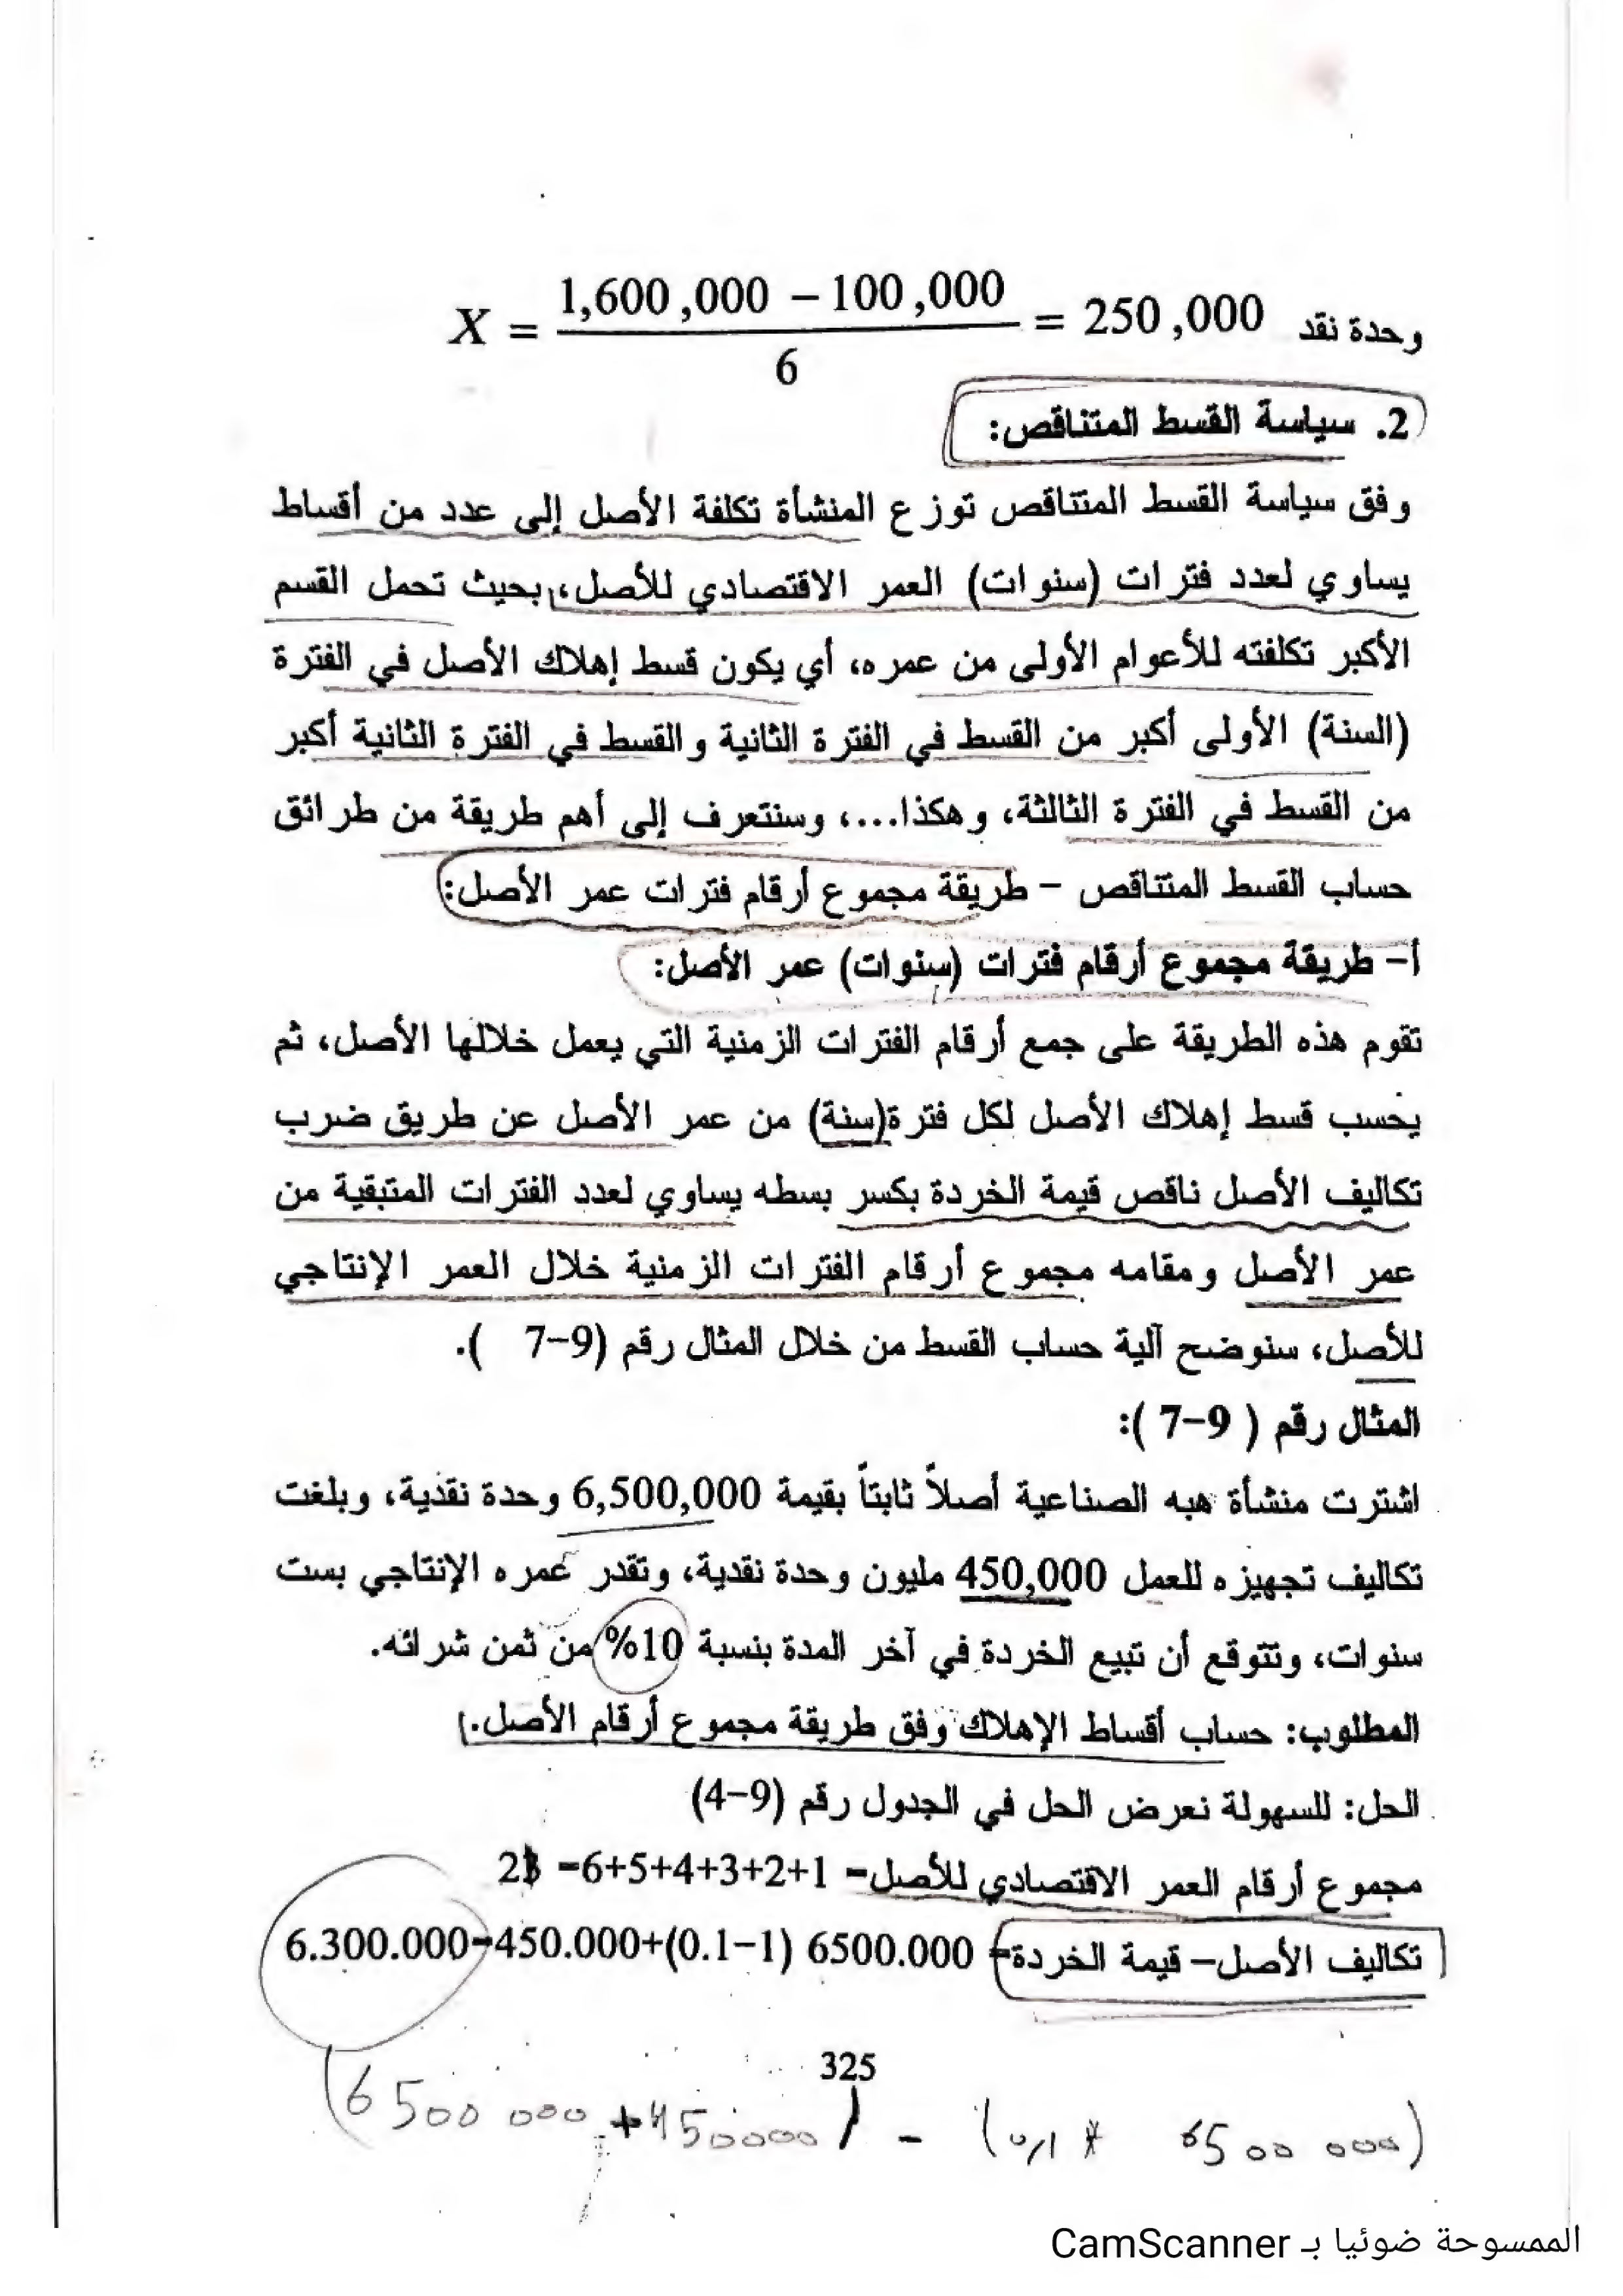 X = 1,600,000 – 100,000 / 6 = 250,000 وحدة نقد
2. سياسة القسط المتناقص:
وفق سياسة القسط المتناقص توزع المنشأة تكلفة الأصل إلى عدد من أقساط
يساوي لعدد فترات (سنوات) العمر الاقتصادي للأصل، بحيث تحمل القسم
الأكبر تكلفته للأعوام الأولى من عمره، أي يكون قسط إهلاك الأصل في الفترة
(السنة) الأولى أكبر من القسط في الفترة الثانية والقسط في الفترة الثانية أكبر
من القسط في الفترة الثالثة، وهكذا...، وسنتعرف إلى أهم طريقة من طرائق
حساب القسط المتناقص – طريقة مجموع أرقام فترات عمر الأصل:
أ– طريقة مجموع أرقام فترات (سنوات) عمر الأصل:
تقوم هذه الطريقة على جمع أرقام الفترات الزمنية التي يعمل خلالها الأصل، ثم
يحسب قسط إهلاك الأصل لكل فترة(سنة) من عمر الأصل عن طريق ضرب
تكاليف الأصل ناقص قيمة الخردة بكسر بسطه يساوي لعدد الفترات المتبقية من
عمر الأصل ومقامه مجموع أرقام الفترات الزمنية خلال العمر الإنتاجي
للأصل، سنوضح آلية حساب القسط من خلال المثال رقم (9–7 ).
المثال رقم ( 9–7 ):
اشترت منشأة هبه الصناعية أصلاً ثابتاً بقيمة 6,500,000 وحدة نقدية، وبلغت
تكاليف تجهيزه للعمل 450,000 مليون وحدة نقدية، وتقدر عمره الإنتاجي بست
سنوات، وتتوقع أن تبيع الخردة في آخر المدة بنسبة 10% من ثمن شرائه.
المطلوب: حساب أقساط الإهلاك وفق طريقة مجموع أرقام الأصل.
الحل: للسهولة نعرض الحل في الجدول رقم (9–4)
مجموع أرقام العمر الاقتصادي للأصل= 1+2+3+4+5+6= 21
تكاليف الأصل– قيمة الخردة= 6500.000 (1–0.1)+450.000=6.300.000
325
(6500 000 + 450000) - (0,1 * 6500 000)
الممسوحة ضوئيا بـ CamScanner